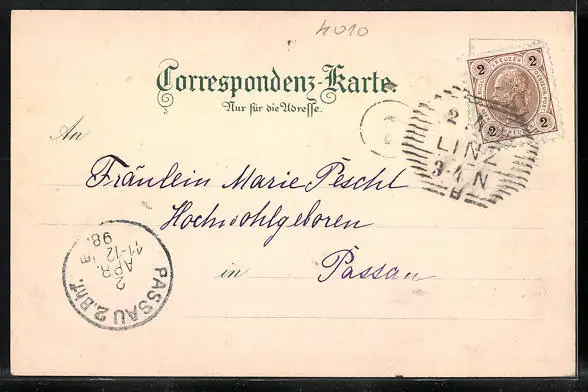 4010
Correspondenz-Karte.
Nur für die Adresse.
2
2
2
2
KREUZER
KREUZER
LINZ
3 4 N
An
Fräulein Marie Peschl
Hochwohlgeboren
in Passau
PASSAU 2. Bhf.
2
APR.
11-12
98.